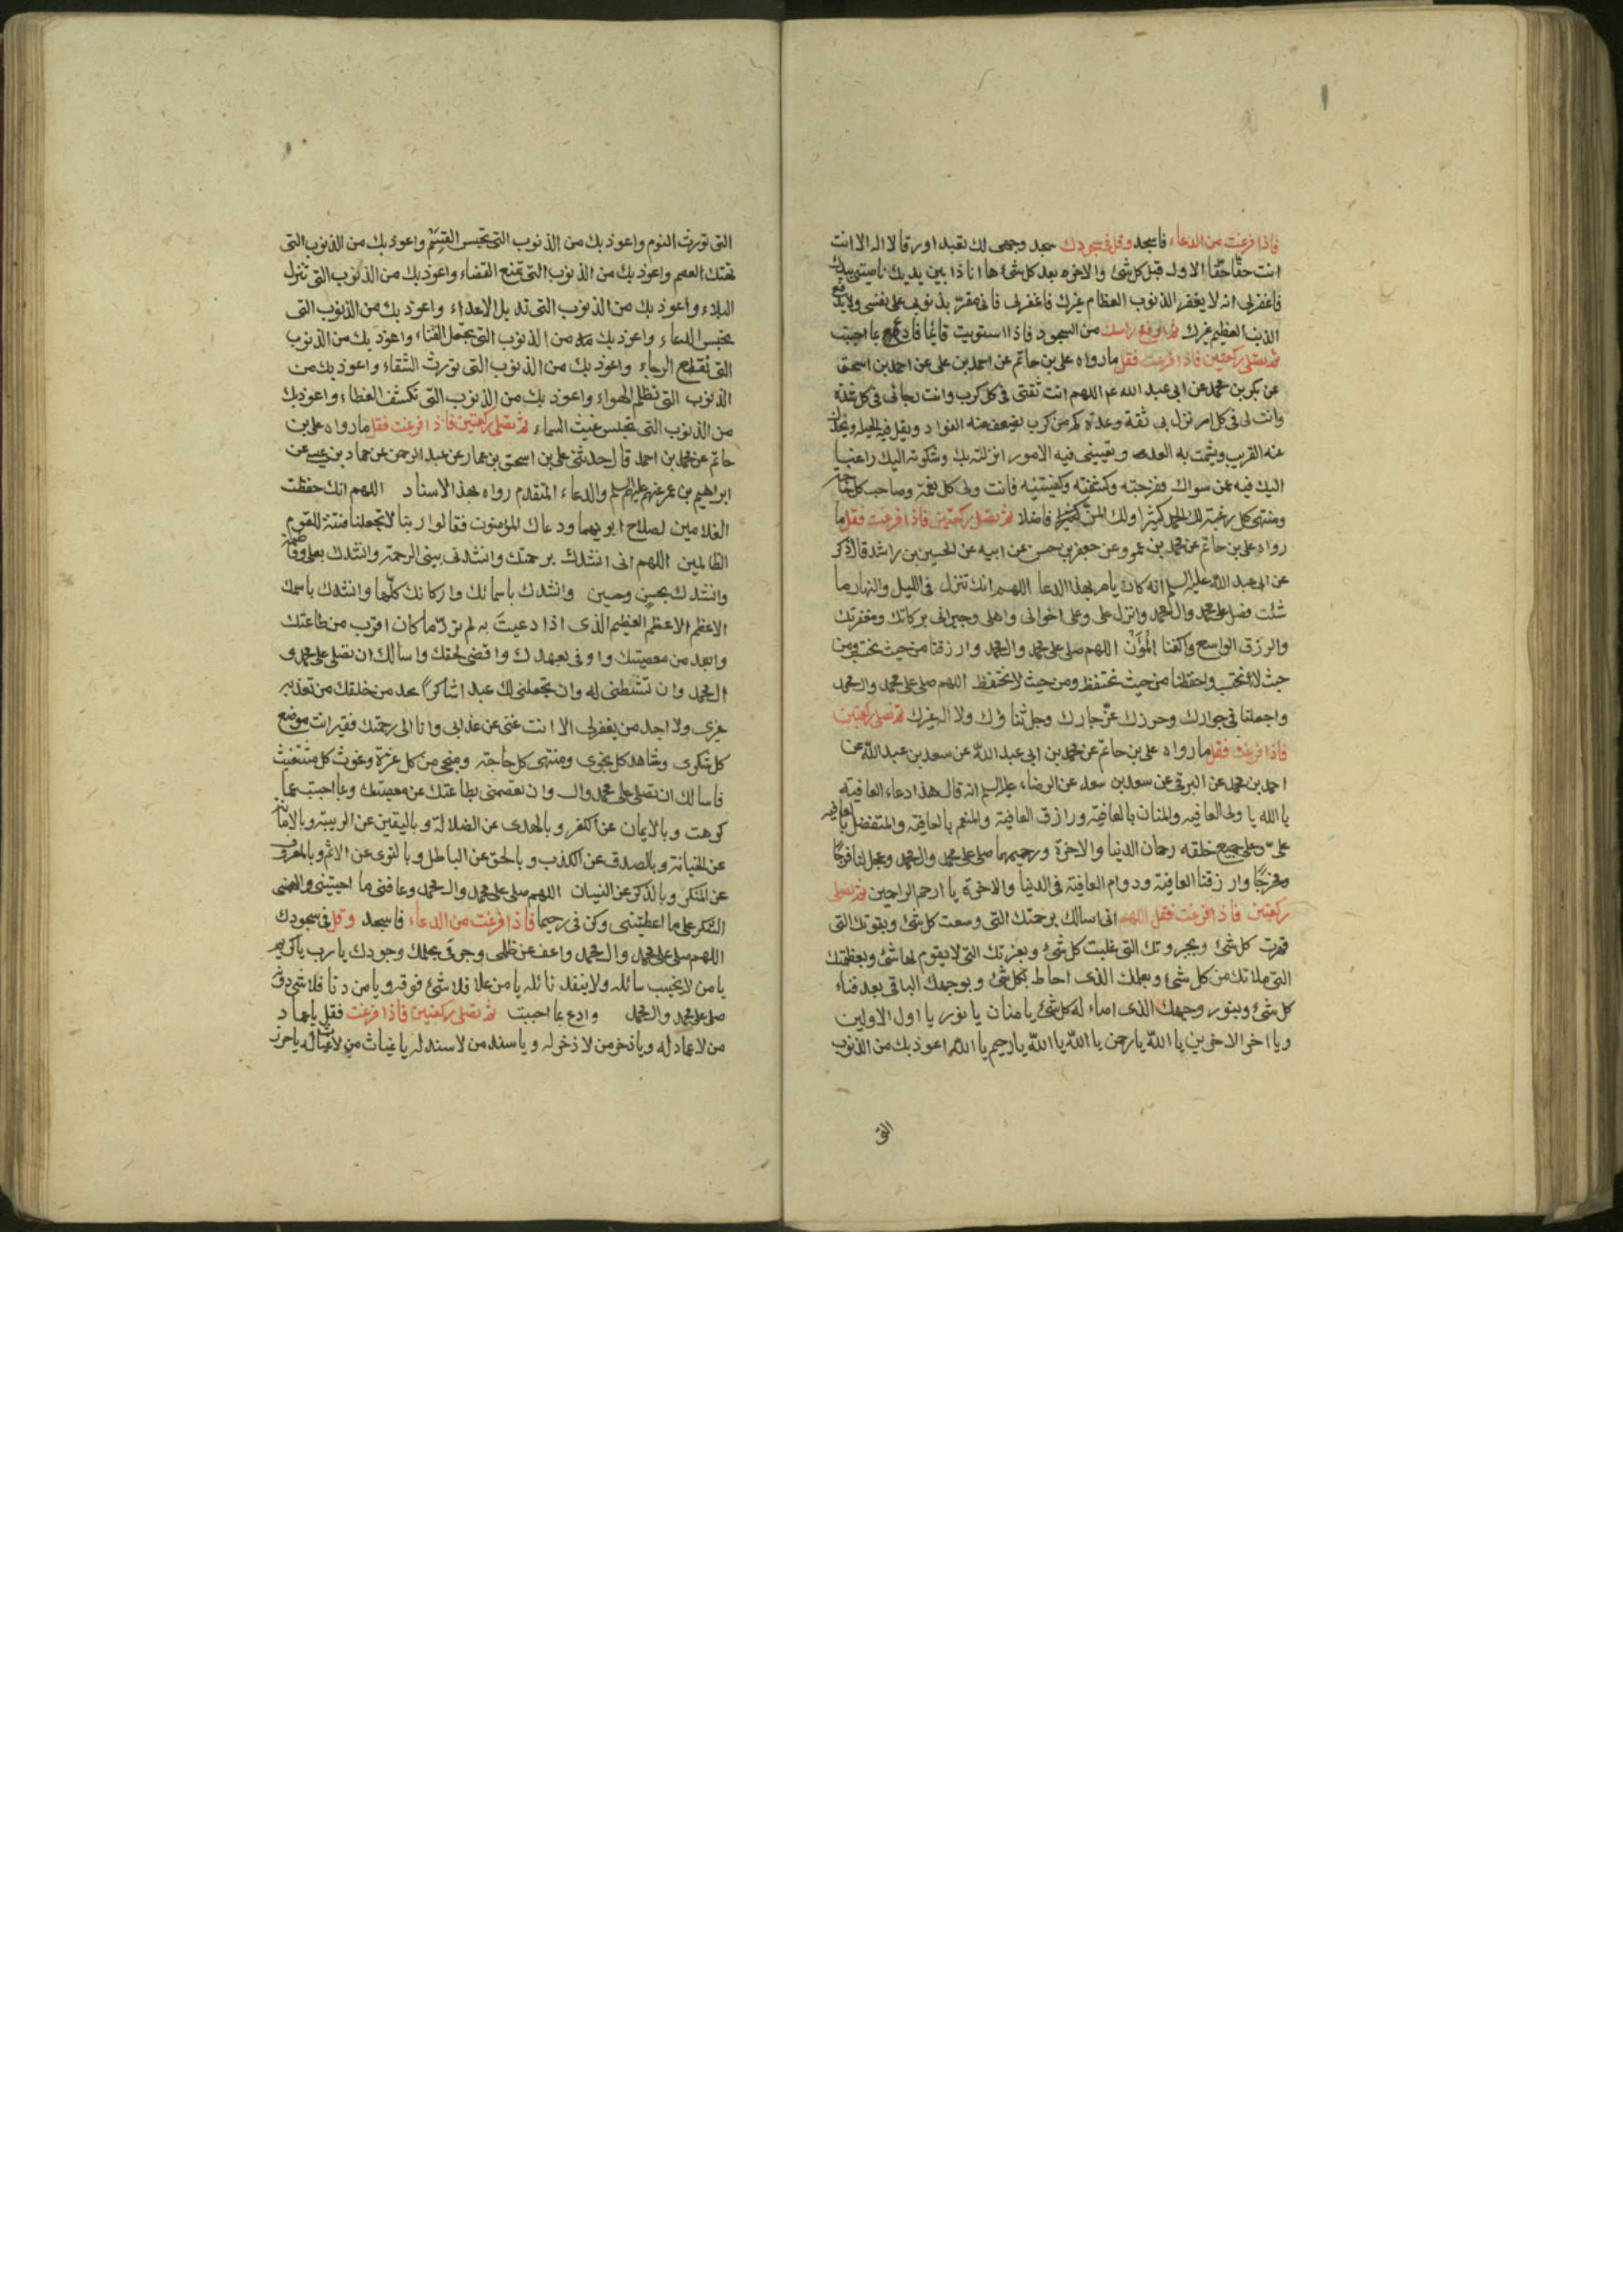 فاذا فرغت من الدعاء فاسجد وقل فى سجودك سجد وجهى لك تعبدا ورقا لا اله الا انت
انت حقا حقا الاول قبل كل شئ والاخر بعد كل شئ ها انا ذا بين يديك ناصيتى بيدك
فاغفرلى انه لا يغفر الذنوب العظام غيرك فاغفرلى فانى مقر بذنوبى على نفسى ولا يدفع
الذنب العظيم غيرك ثم ارفع راسك من السجود فاذا استويت قائما فادع بما احببت
ثم تصلى ركعتين فاذا فرغت فقل ما رواه على بن حاتم عن احمد بن على عن احمد بن اسحق
عن بكر بن محمد عن ابى عبد الله عم اللهم انت ثقتى فى كل كرب وانت رجائى فى كل شدة
وانت لى فى كل امر نزل بى ثقة وعدة كم من كرب يضعف عنه الفواد ويقل فيه الحيلة ويخذل
عنه القريب ويشمت به العدو وتعيينى فيه الامور انزلته بك وشكوته اليك راغبا
اليك فيه عمن سواك ففرجته وكشفته وكفيتنيه فانت ولى كل نعمة وصاحب كل حاجة
ومنتهى كل رغبة لك الحمد كثيرا ولك المن فاضلا ثم تصلى ركعتين فاذا فرغت فقل ما
رواه على بن حاتم عن محمد بن عمرو عن جعفر بن حسن عن ابيه عن الحسين بن راشد قال ذكر
عن ابى عبد الله عليه السلم انه كان يامر بهذا الدعا اللهم انك تنزل فى الليل والنهار ما
شئت فصل على محمد وال محمد وانزل على وعلى اخوانى واهلى وجيرانى بركاتك ومغفرتك
والرزق الواسع واكفنا المؤن اللهم صل على محمد وال محمد وارزقنا من حيث نحتسب ومن
حيث لا نحتسب واحفظنا من حيث نحتفظ ومن حيث لا نحتفظ اللهم صل على محمد وال محمد
واجعلنا فى جوارك وحرزك عز جارك وجل ثناؤك ولا اله غيرك ثم تصلى ركعتين
فاذا فرغت فقل ما رواه على بن حاتم عن محمد بن ابى عبد الله عن سعد بن عبد الله عن
احمد بن محمد عن البرقى عن سعد بن سعد عن الرضاء عليه السلم انه قال هذا دعاء العافية
يا الله يا ولى العافيه والمنان بالعافية ورازق العافية والمنعم بالعافية والمتفضل بالعافيه
على وعلى جميع خلقه رحمان الدنيا والاخرة ورحيمهما صل على محمد وال محمد وعجل لنا فرجا
ومخرجا وارزقنا العافية ودوام العافية فى الدنيا والاخرة يا ارحم الراحمين ثم تصلى
ركعتين فاذا فرغت فقل اللهم انى اسالك برحمتك التى وسعت كل شئ وبقوتك التى
قهرت كل شئ وبجبروتك التى غلبت كل شئ وبعزتك التى لا يقوم لها شئ وبعظمتك
التى ملاتك من كل شئ وبعلمك الذى احاط بكل شئ وبوجهك الباقى بعد فناء
كل شئ وبنور وجهك الذى اضاء له كل شئ يا منان يا نور يا اول الاولين
ويا اخر الاخرين يا الله يا رحمن يا الله يا الله يا رحيم يا الله اعوذ بك من الذنوب
التى
التى تورث الندم واعوذ بك من الذنوب التى تحبس القسم واعوذ بك من الذنوب التى
تهتك العصم واعوذ بك من الذنوب التى تمنع القضاء واعوذ بك من الذنوب التى تنزل
البلاء واعوذ بك من الذنوب التى تديل الاعداء واعوذ بك من الذنوب التى
تحبس الدعاء واعوذ بك من الذنوب التى تعجل الفناء واعوذ بك من الذنوب
التى تقطع الرجاء واعوذ بك من الذنوب التى تورث الشقاء واعوذ بك من
الذنوب التى تظلم الهواء واعوذ بك من الذنوب التى تكشف الغطاء واعوذ بك
من الذنوب التى تحبس غيث السماء ثم تصلى ركعتين فاذا فرغت فقل ما رواه على بن
حاتم عن محمد بن احمد قال حدثنى على بن اسحق بن عمار عن عبد الرحمن عن حماد بن عيسى عن
ابراهيم بن عمر عنهم عليهم السلم والدعاء المتقدم رواه بهذا الاسناد اللهم انك حفظت
الغلامين لصلاح ابويهما ودعاك المؤمنون فقالوا ربنا لا تجعلنا فتنة للقوم
الظالمين اللهم انى انشدك برحمتك وانشدك بنبى الرحمة وانشدك بعلى وفاطمة
وانشدك بحسن وحسين وانشدك باسمائك واركانك كلها وانشدك باسمك
الاعظم الاعظم العظيم الذى اذا دعيت به لم ترد ما كان اقرب من طاعتك
وابعد من معصيتك واوفى بعهدك واقضى لحقك واسالك ان تصلى على محمد و
ال محمد وان تنشطنى له وان تجعلنى لك عبدا شاكرا تجد من خلقك من تعذبه
غيرى ولا اجد من يغفرلى الا انت غنى عن عذابى وانا الى رحمتك فقير انت موضع
كل شكوى وشاهد كل نجوى ومنتهى كل حاجة ومنجى من كل عثرة وغوث كل مستغيث
فاسالك ان تصلى على محمد وال وان تعصمنى بطاعتك عن معصيتك وبما احببت عما
كرهت وبالايمان عن الكفر وبالهدى عن الضلالة وباليقين عن الريبة وبالامانة
عن الخيانة وبالصدق عن الكذب وبالحق عن الباطل وبالتقوى عن الاثم وبالمعروف
عن المنكر وبالذكر عن النسيان اللهم صل على محمد وال محمد وعافنى ما احييتنى والهمنى
الشكر على ما اعطيتنى وكن بى رحيما فاذا فرغت من الدعاء فاسجد وقل فى سجودك
اللهم صل على محمد وال محمد واعف عن ظلمى وجرمى بحلمك وجودك يا رب يا كريم
يا من لا يخيب سائله ولا ينفد نائله يا من علا فلا شئ فوقه ويا من دنا فلا شئ دونه
صل على محمد وال محمد وادع بما احببت ثم تصلى ركعتين فاذا فرغت فقل يا عماد
من لا عماد له ويا ذخر من لا ذخر له ويا سند من لا سند له يا غياث من لا غياث له يا حرز